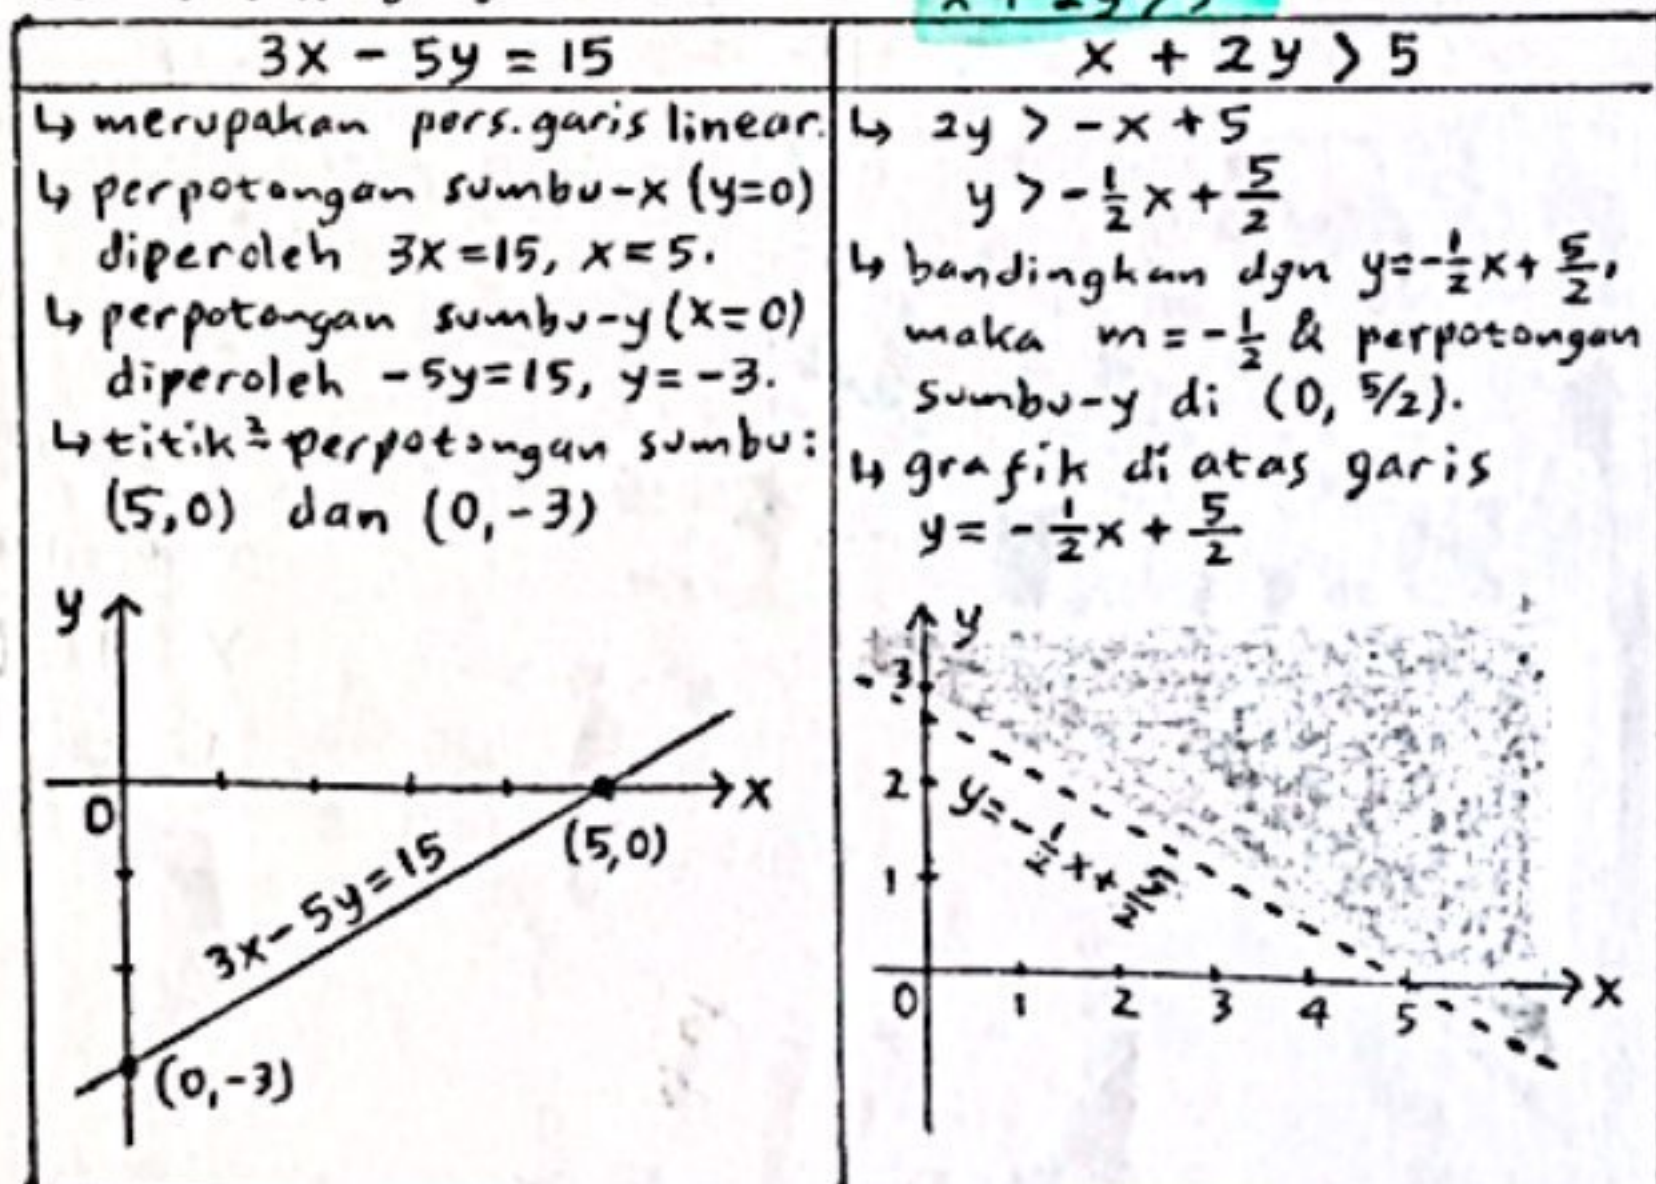 x + 2y > 5
3x - 5y = 15
↳ merupakan pers. garis linear.
↳ perpotongan sumbu-x (y=0)
diperoleh 3x=15, x=5.
↳ perpotongan sumbu-y (x=0)
diperoleh -5y=15, y=-3.
↳ titik² perpotongan sumbu:
(5,0) dan (0,-3)
y
0
x
(5,0)
3x-5y=15
(0,-3)
x + 2y > 5
↳ 2y > -x + 5
y > -1/2 x + 5/2
↳ bandingkan dgn y=-1/2 x + 5/2,
maka m = -1/2 & perpotongan
sumbu-y di (0, 5/2).
↳ grafik di atas garis
y = -1/2 x + 5/2
y
3
2
y=-1/2 x + 5/2
1
0 1 2 3 4 5 x